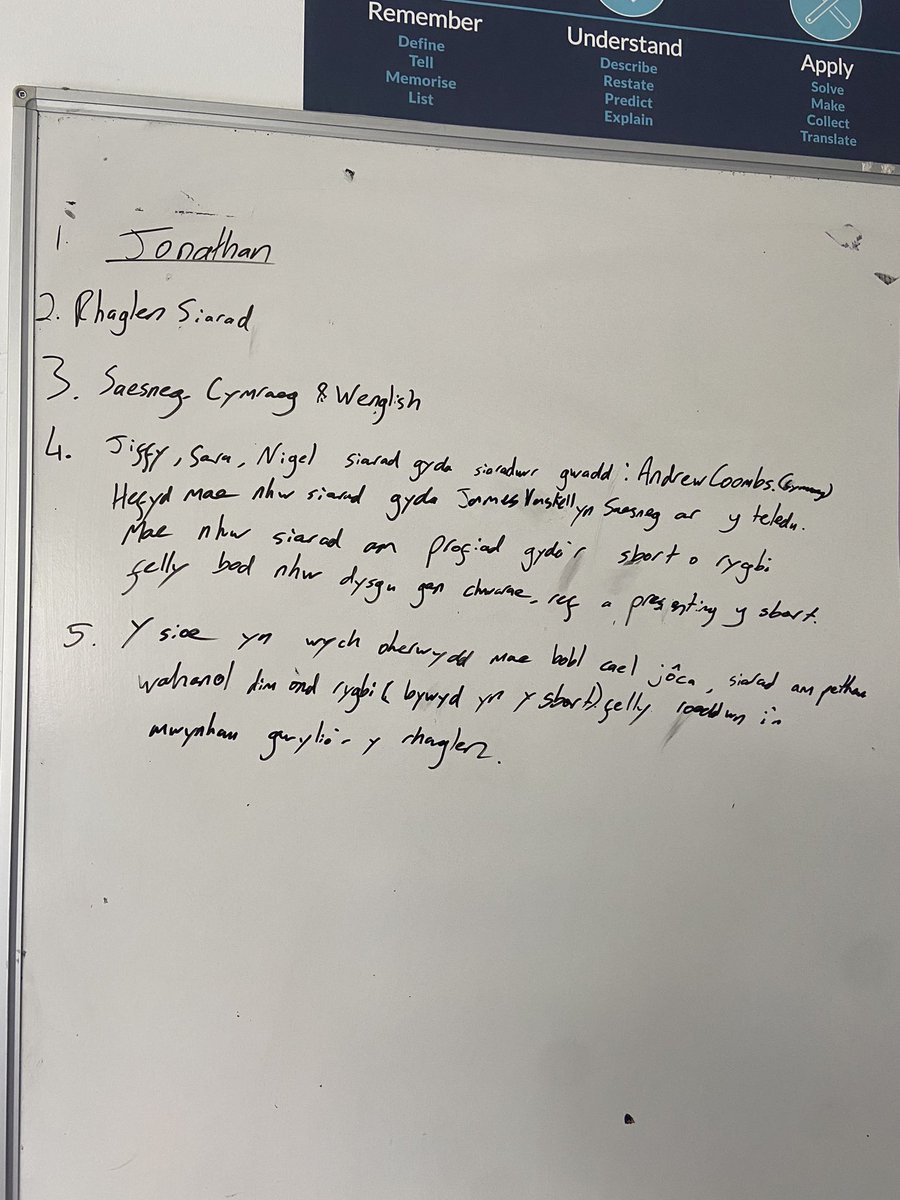 Remember
Define
Tell
Memorise
List
Understand
Describe
Restate
Predict
Explain
Apply
Solve
Make
Collect
Translate
1. Jonathan
2. Rhaglen Siarad
3. Saesneg, Cymraeg & Wenglish
4. Jiffy, Sara, Nigel siarad gyda siaradwr gwadd: Andrew Coombs.
Hefyd mae nhw siarad gyda James yn Saesneg ar y teledu.
Mae nhw siarad am profiad gydo'r sbort o rygbi
felly bod nhw dysgu gan chwarae, ref a presenting y sbort.
5. Y sioe yn wych oherwydd mae bobl cael jôca, siarad am pethau
wahanol dim ond rygbi (bywyd yn y sbort). felly roeddwn i'n
mwynhau gwylio'r y rhaglen.